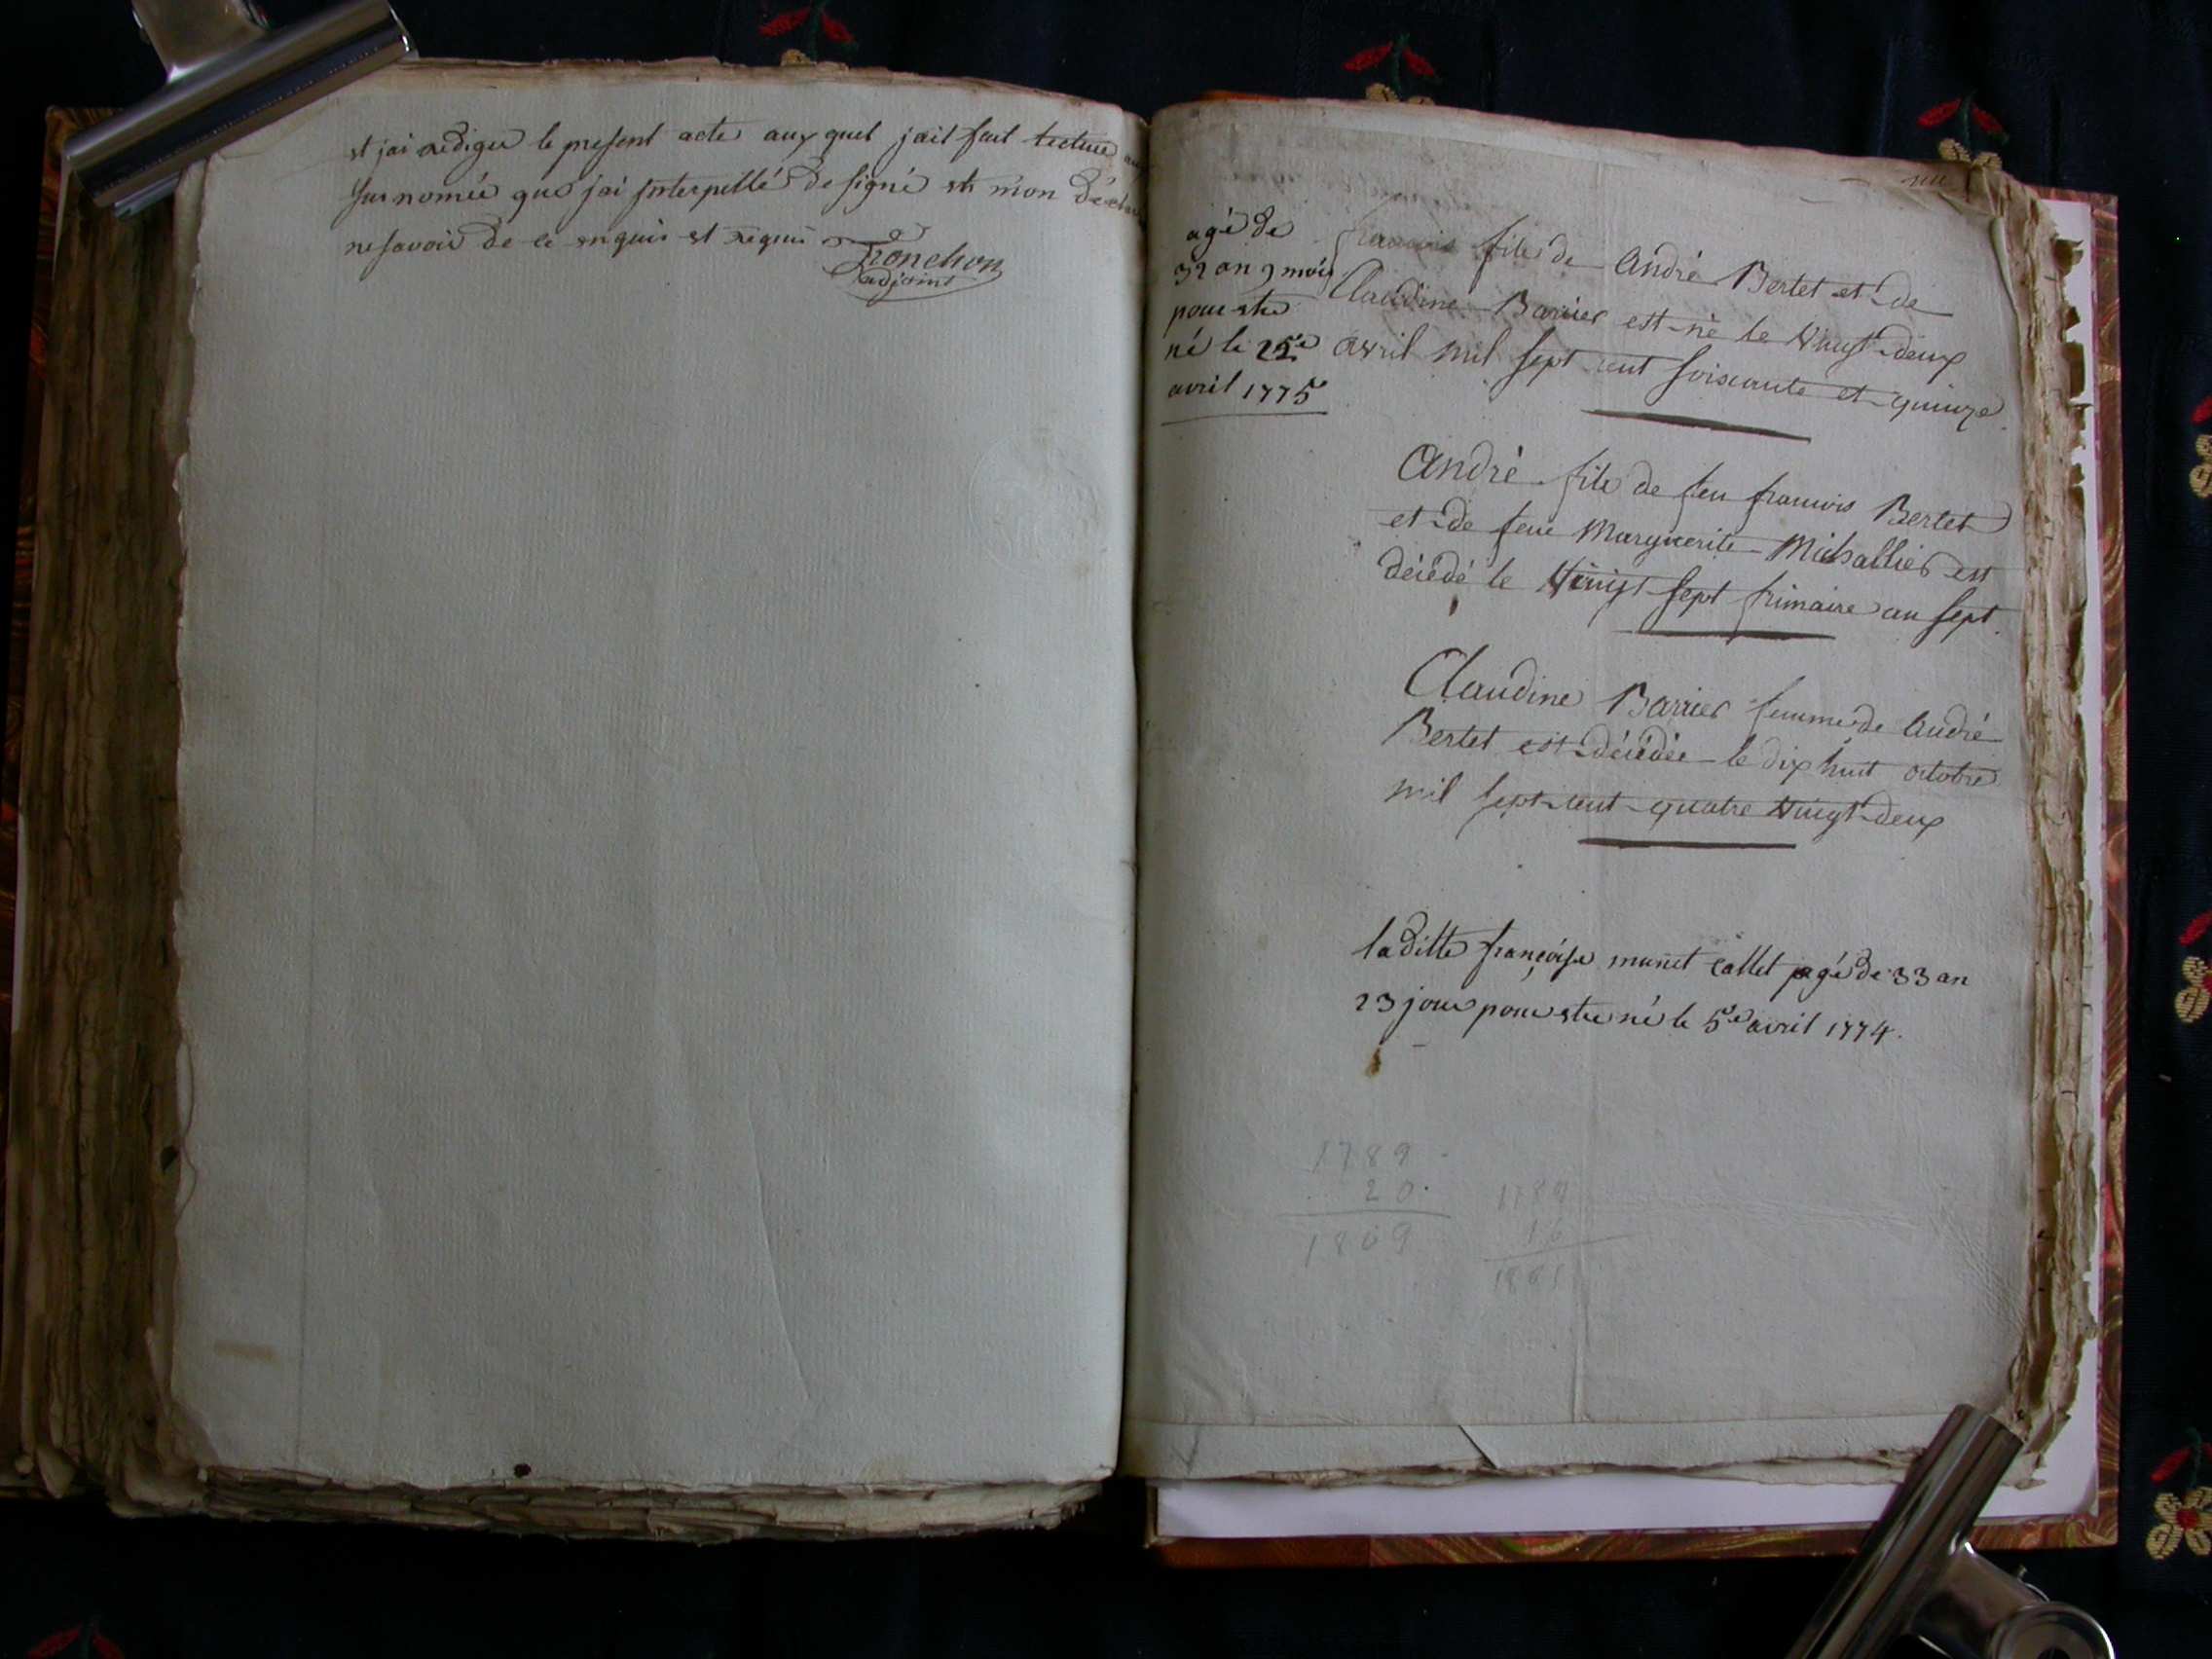 et jai rediger le present acte auxquel jait fait lecture
sus nomée que jai interpellé de signé et m'on déclaré
ne savoir de ce enquis et requis
Tronchon
adjoint
agé de
32 an 9 mois
pour etre
né le 22e
avril 1775
francois fils de André Bertet et de
Claudine Barrier est né le vingt deux
avril mil sept cent soixante et quinze
André fils de feu francois Bertet
et de feue Marguerite Michallier est
décédé le vingt sept frimaire an sept.
Claudine Barrier femme de André
Bertet est décédée le dix huit octobre
mil sept cent quatre vingt deux
la ditte françoise munet Callet agé de 33 an
23 jour pour etre né le 5e avril 1774.
1789
20
1809
1789